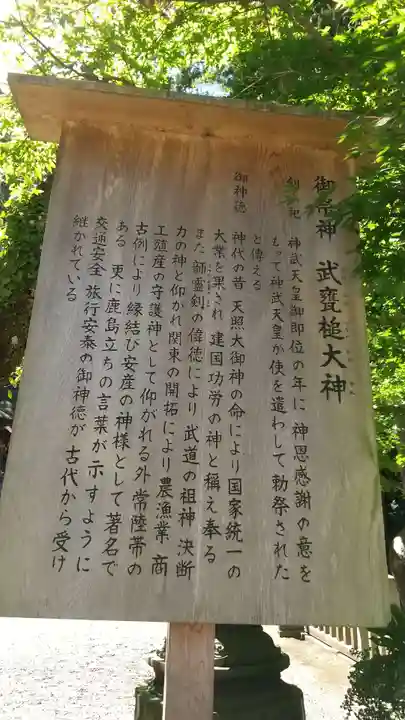 御祭神 武甕槌大神
創祀 神武天皇御即位の年に 神恩感謝の意を
もって神武天皇が使を遣わして勅祭された
と傳える
御神徳 神代の昔 天照大御神の命により国家統一の
大業を果され 建国功労の神と稱え奉る
また 韴霊剣の偉徳により 武道の祖神 決断
力の神と仰がれ関東の開拓により農漁業 商
工殖産の守護神として仰がれる外 常陸帯の
古例により 縁結び安産の神様として著名で
ある 更に鹿島立ちの言葉が示すように
交通安全 旅行安泰の御神徳が 古代から受け
継がれている